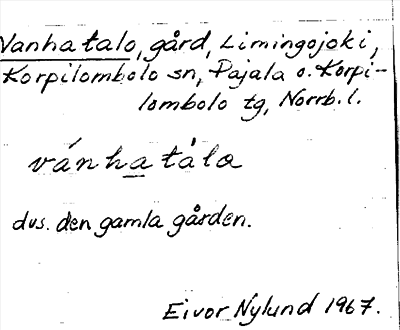 Vanhatalo, gård, Limingojoki,
Korpilombolo sn, Pajala o. Korpi-
lombolo tg, Norrb. l.
vánhatàlo
dvs. den gamla gården.
Eivor Nylund 1967.